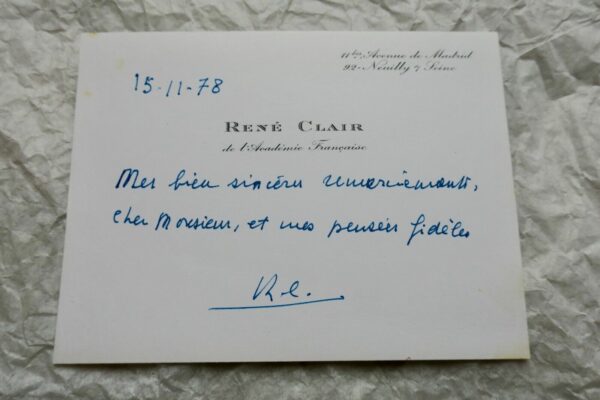 11bis Avenue de Madrid
92-Neuilly s/ Seine
15-11-78
RENÉ CLAIR
de l'Académie Française
Mes bien sincères remerciements,
cher Monsieur, et mes pensées fidèles
R.C.